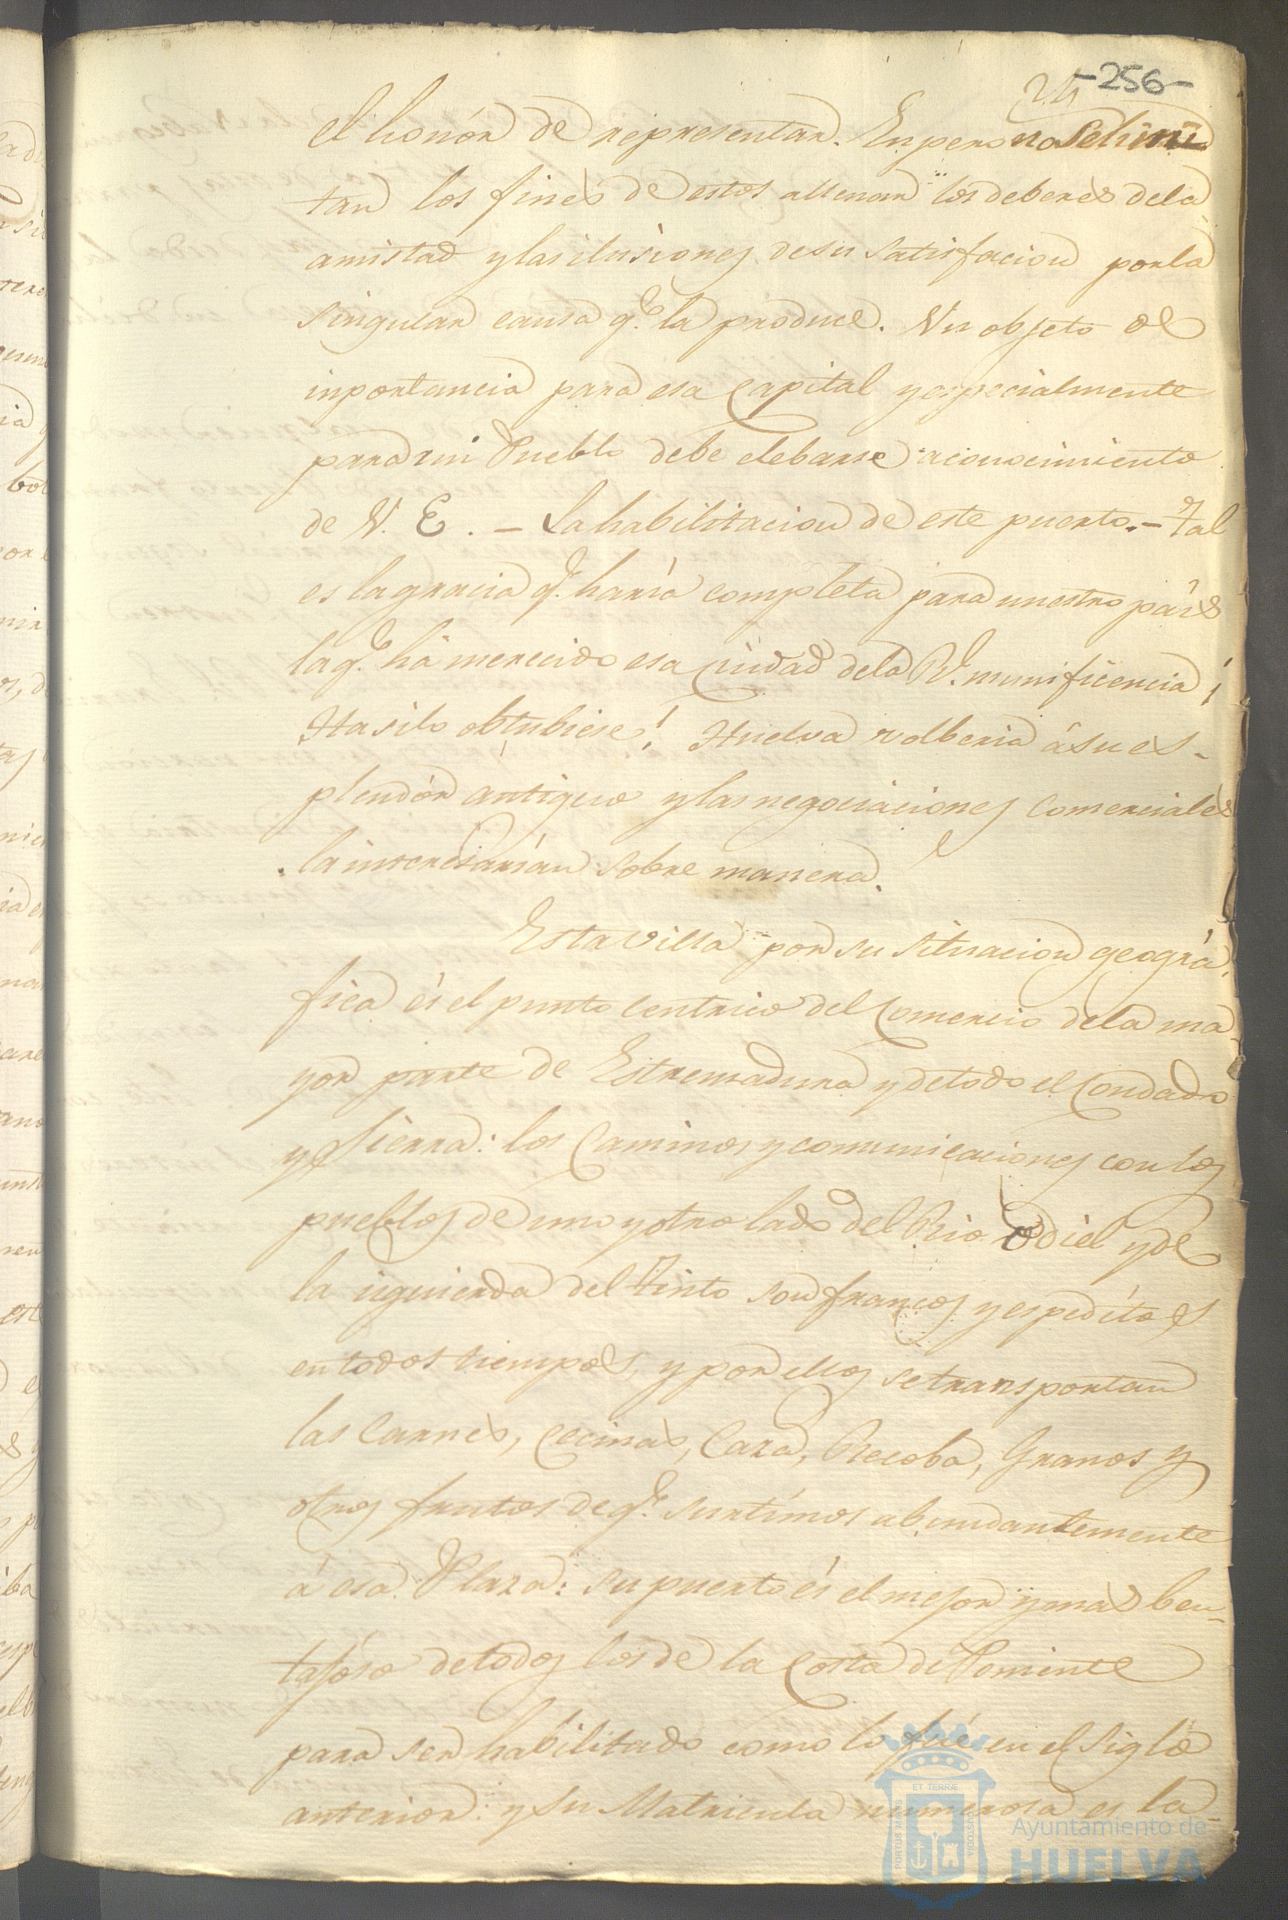 -256-
el honór de representar. Enpero no se limi
tan los finés de estos allenar los deberes dela
amistad y las ilusiones de su satisfacion por la
singular causa q.e la produce. Un objeto de
inportancia para esa Capital y especialmente
para mi Pueblo debe elebarse a conocimiento
de V. E. - La habilitacion de este puerto. - Tal
es la gracia q.e haría completa para nuestro país
la q.e há merecido esa Ciudad dela R.l munificencia ¡
Ha si lo obtubiese! Huelva volberia á su es-
plendór antiguo y las negociaciones Comerciales
la interesarían sobre manera.
Esta villa por su situacion geográ
fica és el punto centrico del Comercio dela ma
yor parte de Estremadura y de todo el Condado
y Sierra: los Caminos y comunicaciones con los
pueblos de uno y otro lado del Rio Odiel y de
la izquierda del Tinto son francos y espeditos
en todos tiempos, y por ellos se transportan
las Carnes, Cecinas, Caza, Recoba, Granos y
otros frutos de q.e surtímos abundantemente
á esa Plaza: su puerto és el mejor y mas ben-
tajoso de todos los de la Costa de Poniente
para ser habilitado como lo fué en el Siglo
anterior: y su Matricula numerosa es la
ET TERRÆ
PORTUS MARIS
CUSTODIA
Ayuntamiento de
HUELVA